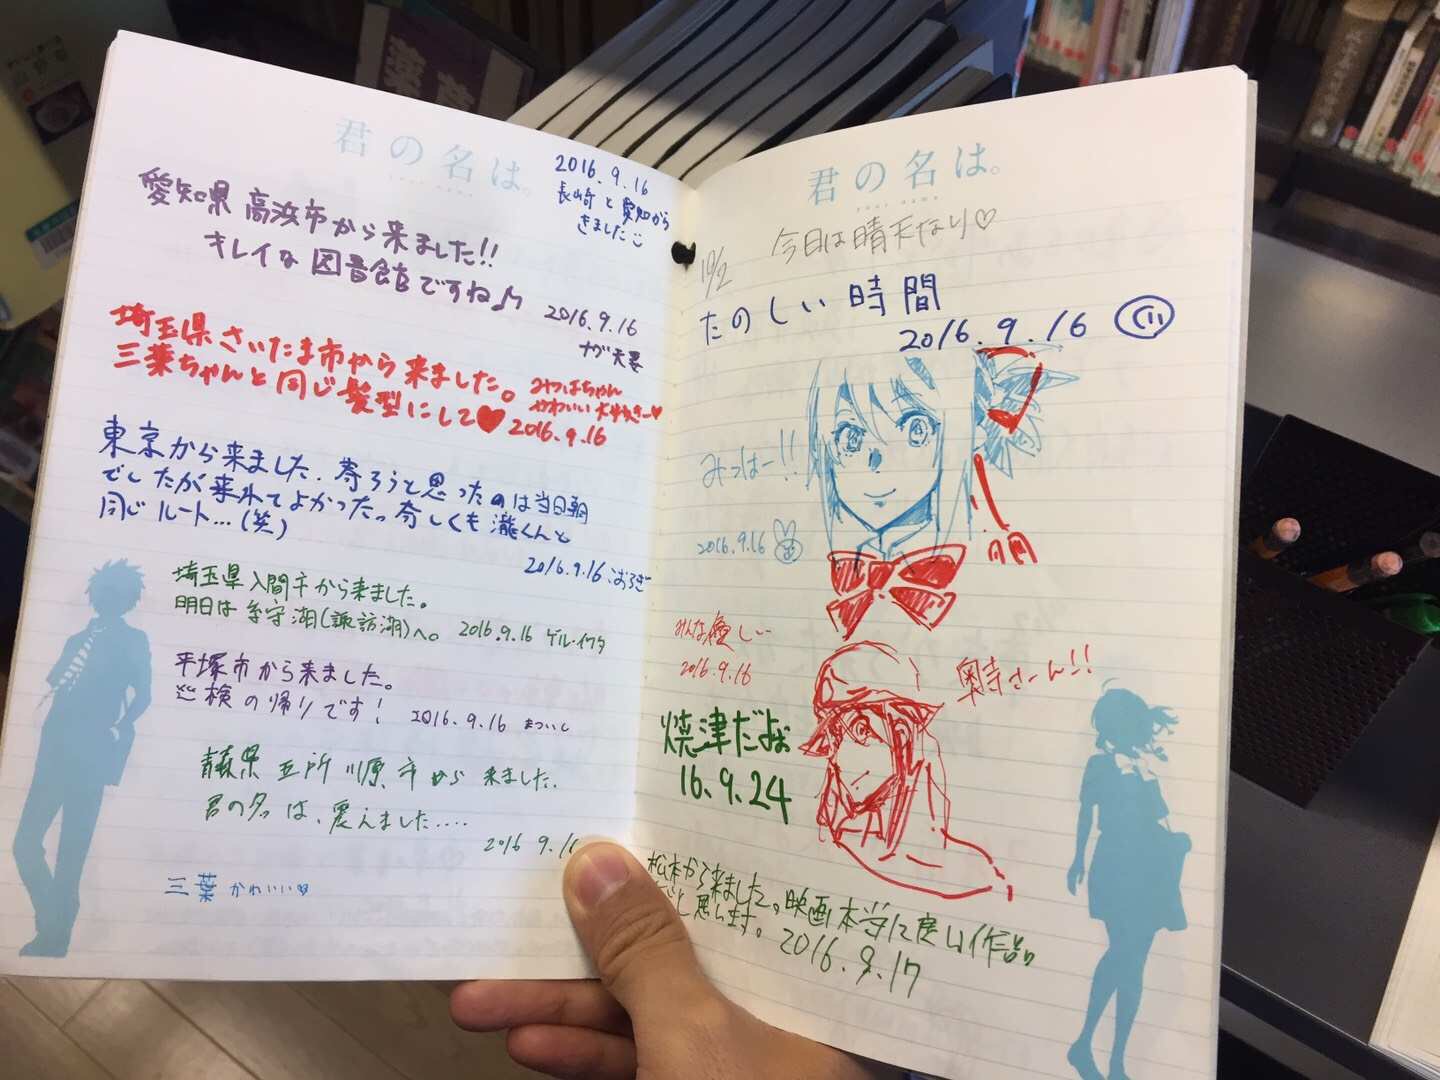 君の名は。
2016.9.16
長崎と愛知から
きました
愛知県高浜市から来ました!!
キレイな図書館ですね♪
2016.9.16
埼玉県さいたま市から来ました。
三葉ちゃんと同じ髪型にして♥
みつはちゃん
かわいい大好きー♡
2016.9.16
東京から来ました.寄ろうと思ったのは当日朝
でしたが来れてよかったっ奇しくも瀧くんと
同じルート…(笑)
2016.9.16
埼玉県入間市から来ました。
明日は糸守湖(諏訪湖)へ。 2016.9.16 ゲル・イワタ
平塚市から来ました。
巡検の帰りです! 2016.9.16 まついし
青森県五所川原市から来ました.
君の名は、震えました....
2016 9.16
三葉かわいい♡
君の名は。
your name.
10/2
今日は晴天なり♡
たのしい時間
2016.9.16
みつはー!!
2016.9.16
みんな優しい
2016.9.16
奥寺さーん!!
焼津だよぉ
16.9.24
松本から来ました。映画本当に良い作品
だと思います。
2016.9.17